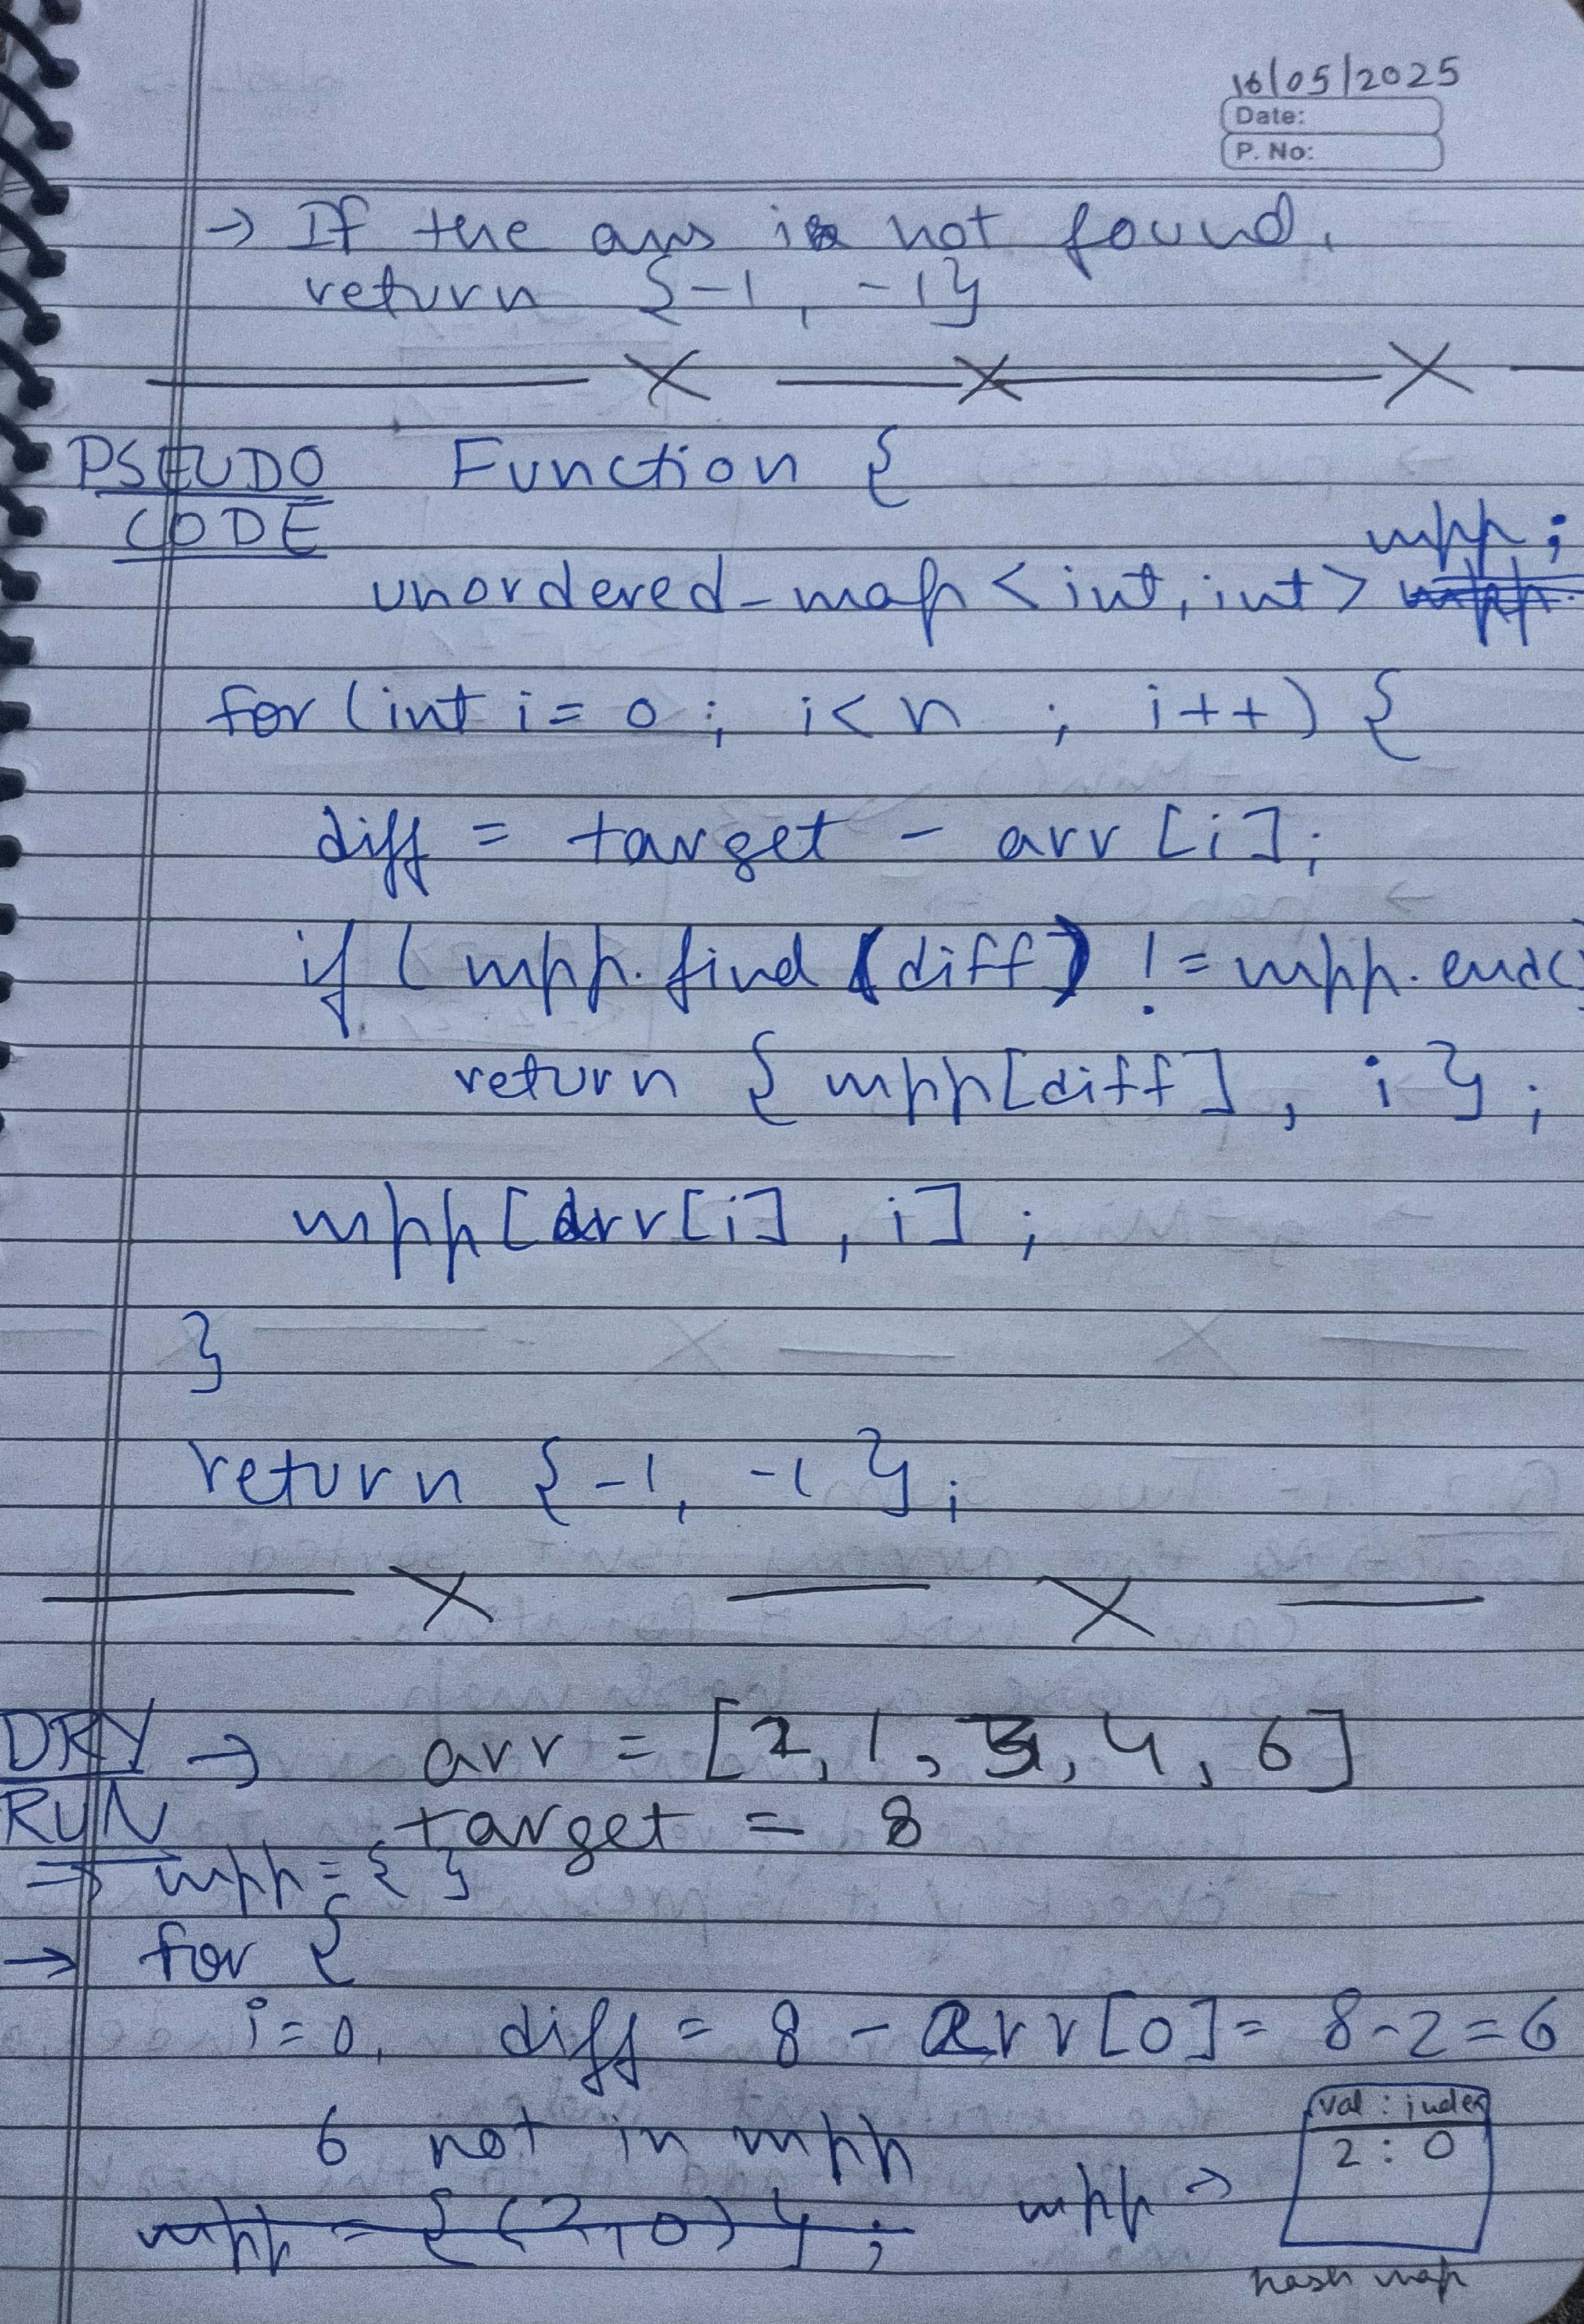 16/05/2025
Date:
P. No:
→ If the ans is not found,
return {-1, -1}
PSEUDO CODE
Function {
unordered_map <int, int> mpp;
for (int i = 0 ; i < n ; i++) {
diff = target - arr [i];
if ( mpp.find (diff) != mpp.end()
return { mpp[diff] , i } ;
mpp [arr[i] , i] ;
}
return {-1, -1 };
DRY RUN → arr = [2, 1, 3, 4, 6]
target = 8
⇒ mpp = { }
→ for {
i=0, diff = 8 - arr[0] = 8-2=6
6 not in mpp
mpp = {(2,0)} ;
mpp →
val : index
2 : 0
hash map